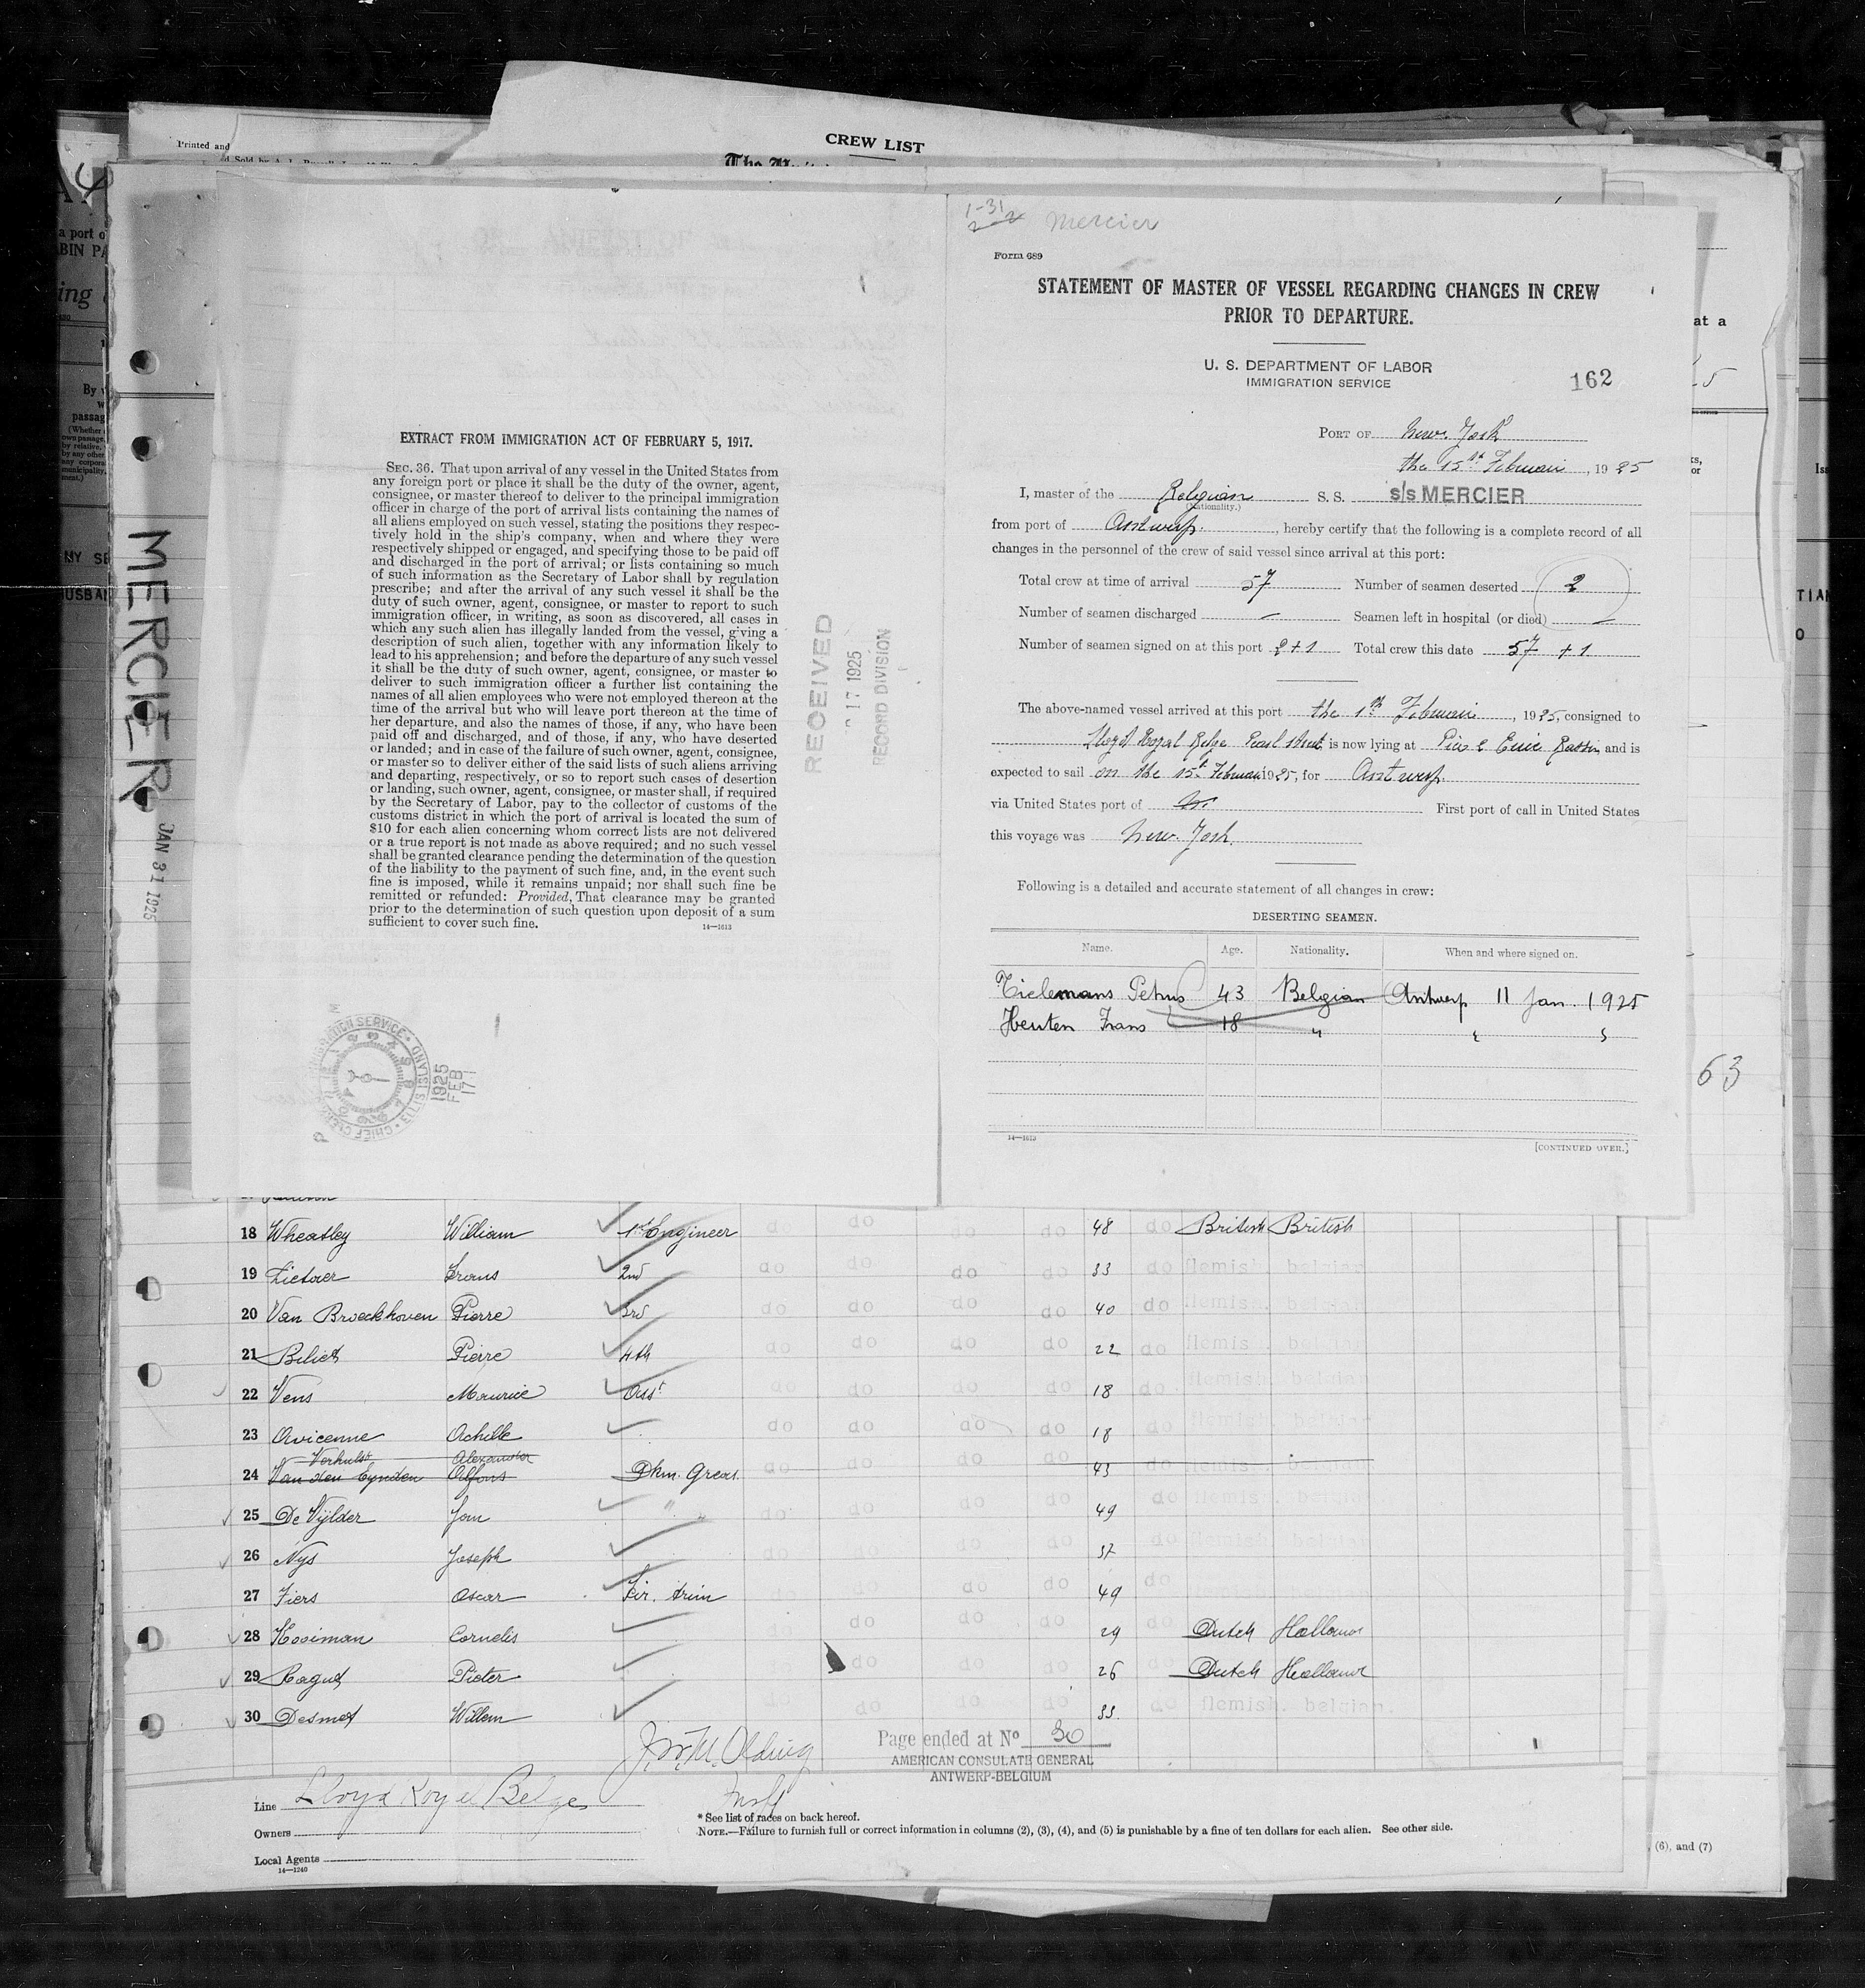 Printed and
CREW LIST
a port o
ABIN PA
ing
By
passag
MERCIER
JAN 31 1925
EXTRACT FROM IMMIGRATION ACT OF FEBRUARY 5, 1917.
SEC. 36. That upon arrival of any vessel in the United States from
any foreign port or place it shall be the duty of the owner, agent,
consignee, or master thereof to deliver to the principal immigration
officer in charge of the port of arrival lists containing the names of
all aliens employed on such vessel, stating the positions they respec-
tively hold in the ship's company, when and where they were
respectively shipped or engaged, and specifying those to be paid off
and discharged in the port of arrival; or lists containing so much
of such information as the Secretary of Labor shall by regulation
prescribe; and after the arrival of any such vessel it shall be the
duty of such owner, agent, consignee, or master to report to such
immigration officer, in writing, as soon as discovered, all cases in
which any such alien has illegally landed from the vessel, giving a
description of such alien, together with any information likely to
lead to his apprehension; and before the departure of any such vessel
it shall be the duty of such owner, agent, consignee, or master to
deliver to such immigration officer a further list containing the
names of all alien employees who were not employed thereon at the
time of the arrival but who will leave port thereon at the time of
her departure, and also the names of those, if any, who have been
paid off and discharged, and of those, if any, who have deserted
or landed; and in case of the failure of such owner, agent, consignee,
or master so to deliver either of the said lists of such aliens arriving
and departing, respectively, or so to report such cases of desertion
or landing, such owner, agent, consignee, or master shall, if required
by the Secretary of Labor, pay to the collector of customs of the
customs district in which the port of arrival is located the sum of
$10 for each alien concerning whom correct lists are not delivered
or a true report is not made as above required; and no such vessel
shall be granted clearance pending the determination of the question
of the liability to the payment of such fine, and, in the event such
fine is imposed, while it remains unpaid; nor shall such fine be
remitted or refunded: Provided, That clearance may be granted
prior to the determination of such question upon deposit of a sum
sufficient to cover such fine.
14—1613
RECEIVED
17 1925
RECORD DIVISION
IMMIGRATION SERVICE
CHIEF CLERK ELLIS ISLAND
1925 FEB 17
1-31 Mercier
Form 689
STATEMENT OF MASTER OF VESSEL REGARDING CHANGES IN CREW
PRIOR TO DEPARTURE.
U. S. DEPARTMENT OF LABOR
IMMIGRATION SERVICE
162
PORT OF New. York
the 15th Februari, 1925
I, master of the Belgian S. S. s/s MERCIER
(Nationality.)
from port of Antwerp., hereby certify that the following is a complete record of all
changes in the personnel of the crew of said vessel since arrival at this port:
Total crew at time of arrival 57 Number of seamen deserted 2
Number of seamen discharged — Seamen left in hospital (or died) —
Number of seamen signed on at this port 2+1 Total crew this date 57 +1
The above-named vessel arrived at this port the 1th Februari, 1925, consigned to
Lloyd Royal Belge Pearl street is now lying at Pier 2 Erie Bassin and is
expected to sail on the 15th Februari 1925, for Antwerp.
via United States port of First port of call in United States
this voyage was New. York.
Following is a detailed and accurate statement of all changes in crew:
DESERTING SEAMEN.
Name. Age. Nationality. When and where signed on.
Tielemans Petrus 43 Belgian Antwerp 11 Jan. 1925
Heuten Frans 18 " " "
14—1613
[CONTINUED OVER.]
at a
63
18 Wheatley William 1st Engineer do do do do 48 do British British
19 Lietaer Frans 2nd do do do do 33 do flemish. belgian
20 Van Broeckhoven Pierre 3rd do do do do 40 do flemish. belgian
21 Biliet Pierre 4th do do do do 22 do flemish. belgian
22 Vens Maurice Asst do do do do 18 do flemish. belgian
23 Avicenne Achille do do do do 18 do flemish. belgian
Verhulst Alexander
24 Van den Eynden Alfons Dkm. Greas. do do do do 43 flemish. belgian
25 De Vijlder Jan " do do do do 49 do flemish. belgian
26 Nys Joseph do do do do 37 do flemish. belgian
27 Fiers Oscar Fir. trim do do do do 49 do flemish. belgian
28 Kooiman Cornelis do do do do 29 do Dutch Holland
29 Ragut Pieter do do do do 26 do Dutch Holland
30 Desmet Willem do do do do 33. do flemish. belgian.
Page ended at No 30
AMERICAN CONSULATE GENERAL
ANTWERP-BELGIUM
Line Lloyd Royal Belge
Owners
Local Agents
14—1240
* See list of races on back hereof.
NOTE.—Failure to furnish full or correct information in columns (2), (3), (4), and (5) is punishable by a fine of ten dollars for each alien. See other side.
, (6), and (7)